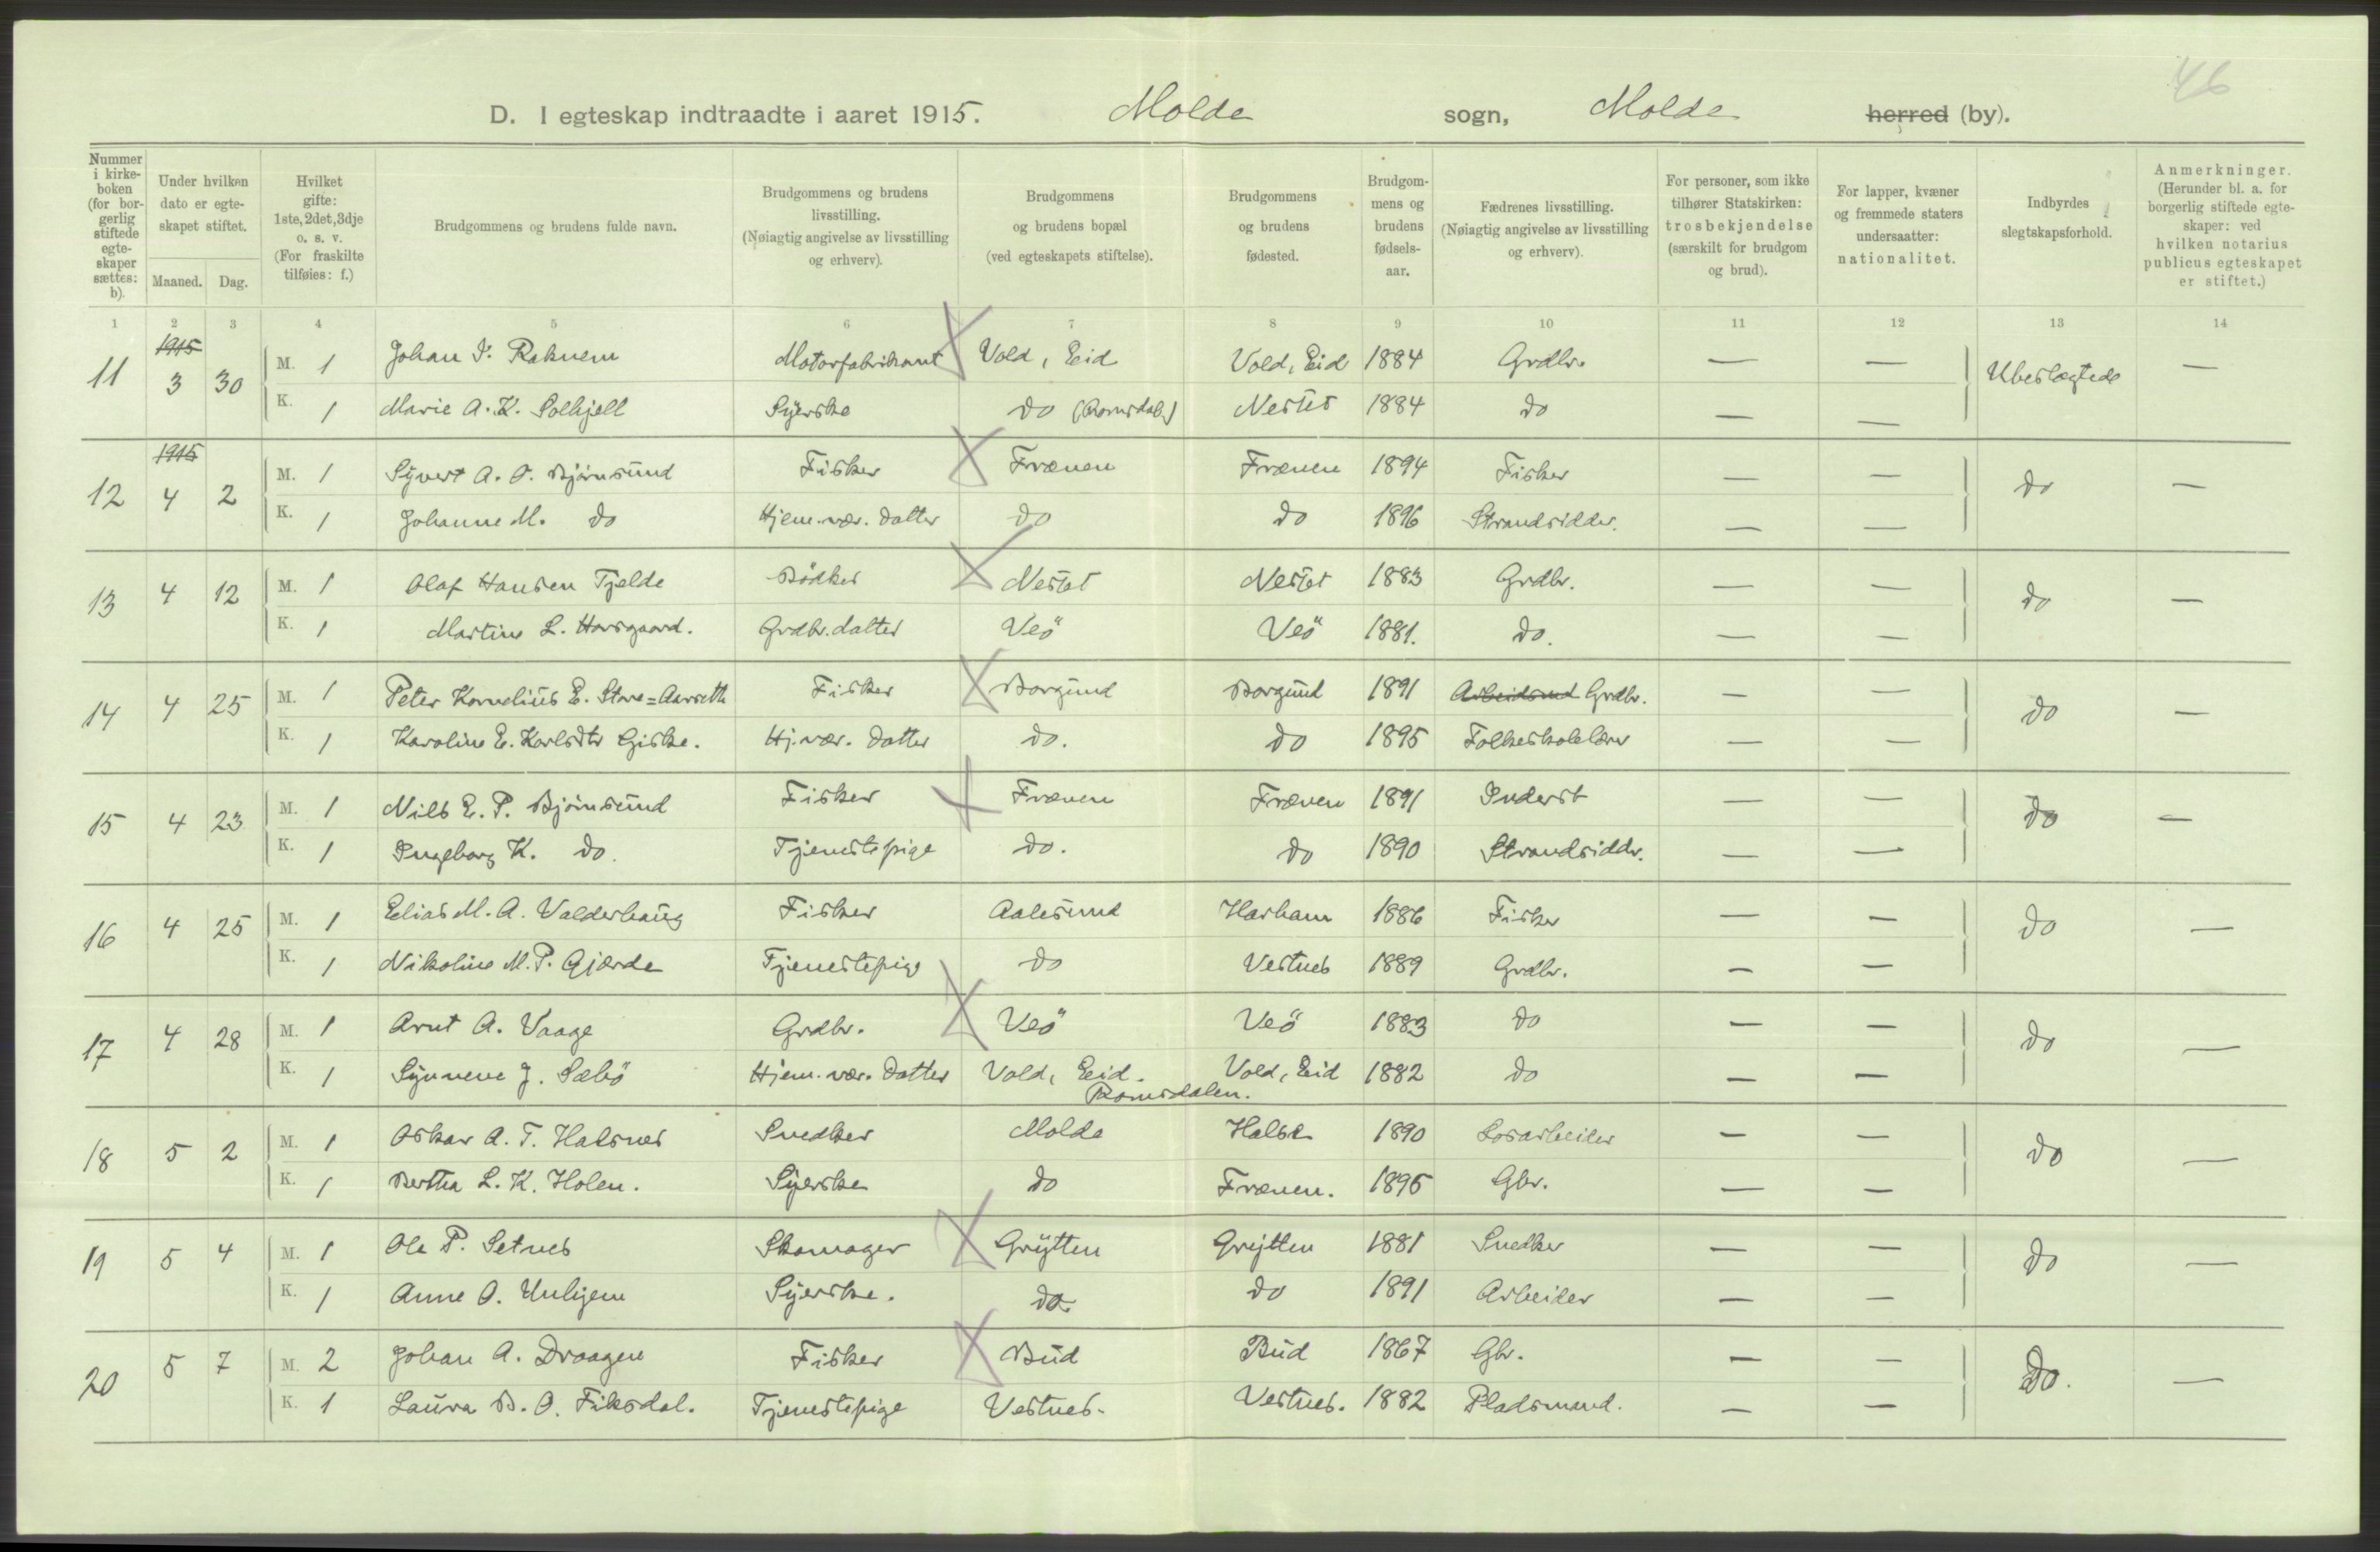 46
D. I egteskap indtraadte i aaret 1915. Molde sogn, Molde herred (by).
Nummer i kirkeboken (for borgerlig stiftede egteskaper sættes: b).
Under hvilken dato er egteskapet stiftet.
Maaned. Dag.
Hvilket gifte: 1ste, 2det, 3dje o. s. v. (For fraskilte tilføies: f.)
Brudgommens og brudens fulde navn.
Brudgommens og brudens livsstilling. (Nøiagtig angivelse av livsstilling og erhverv).
Brudgommens og brudens bopæl (ved egteskapets stiftelse).
Brudgommens og brudens fødested.
Brudgommens og brudens fødselsaar.
Fædrenes livsstilling. (Nøiagtig angivelse av livsstilling og erhverv).
For personer, som ikke tilhører Statskirken: trosbekjendelse (særskilt for brudgom og brud).
For lapper, kvæner og fremmede staters undersaatter: nationalitet.
Indbyrdes slegtskapsforhold.
Anmerkninger. (Herunder bl. a. for borgerlig stiftede egteskaper: ved hvilken notarius publicus egteskapet er stiftet.)
1 2 3 4 5 6 7 8 9 10 11 12 13 14
1915
11 3 30 M. 1 Johan Rakvem Motorfabrikant Vold, Eid Vold, Eid 1884 Grdbr. — — Ubeslægtede —
K. 1 Marie A. K. Solhjell Syerske do (Romsdal) Nesset 1884 do — —
1915
12 4 2 M. 1 Syvert A. O. Bjørnsund Fisker Frænen Frænen 1894 Fisker — — do —
K. 1 Johanne M. do Hjem. vær. datter do do 1896 Strandsidder. — —
13 4 12 M. 1 Olaf Hansen Tjelde Bödker Nesset Nesset 1883 Grdbr. — — do —
K. 1 Martine L. Horsgaard. Grdbr. datter Veö Veö 1881. do. — —
14 4 25 M. 1 Peter Kornelius E. Store=Aarseth Fisker Borgund Borgund 1891 Arbeidsmd Grdbr. — — do —
K. 1 Karoline E. Karlsdtr Giske. Hj. vær. datter do. do 1895 Folkeskolelærer — —
15 4 23 M. 1 Nils E. P. Bjørnsund Fisker Frænen Frænen 1891 Inderst — — do —
K. 1 Ingeborg K. do. Tjenestepige do. do 1890 Strandsiddr. — —
16 4 25 M. 1 Elias M. A. Valderhaug Fisker Aalesund Harham 1886 Fisker — — do —
K. 1 Nikoline M. P. Gjærde Tjenestepige do Vestnes 1889 Grdbr. — —
17 4 28 M. 1 Arnt A. Vaage Grdbr. Veö Veö 1883 do — — do —
K. 1 Synneve J. Sæbö Hjem. vær. datter Vold, Eid. Vold, Eid 1882 do — —
Romsdalen.
18 5 2 M. 1 Oskar A. T. Halsnes Snedker Molde Halse 1890 Løsarbeider — — do —
K. 1 Bertha L. K. Holen. Syerske do Frænen. 1895 Gbr. — —
19 5 4 M. 1 Ole P. Setnes Skomager Grytten Grytten 1881 Snedker — — do —
K. 1 Anne O. Unhjem Syerske. do. do 1891 Arbeider — —
20 5 7 M. 2 Johan A. Draagen Fisker Bud Bud 1867 Gbr. — — do. —
K. 1 Laura B. O. Fiksdal. Tjenestepige Vestnes. Vestnes. 1882 Pladsmand. — —